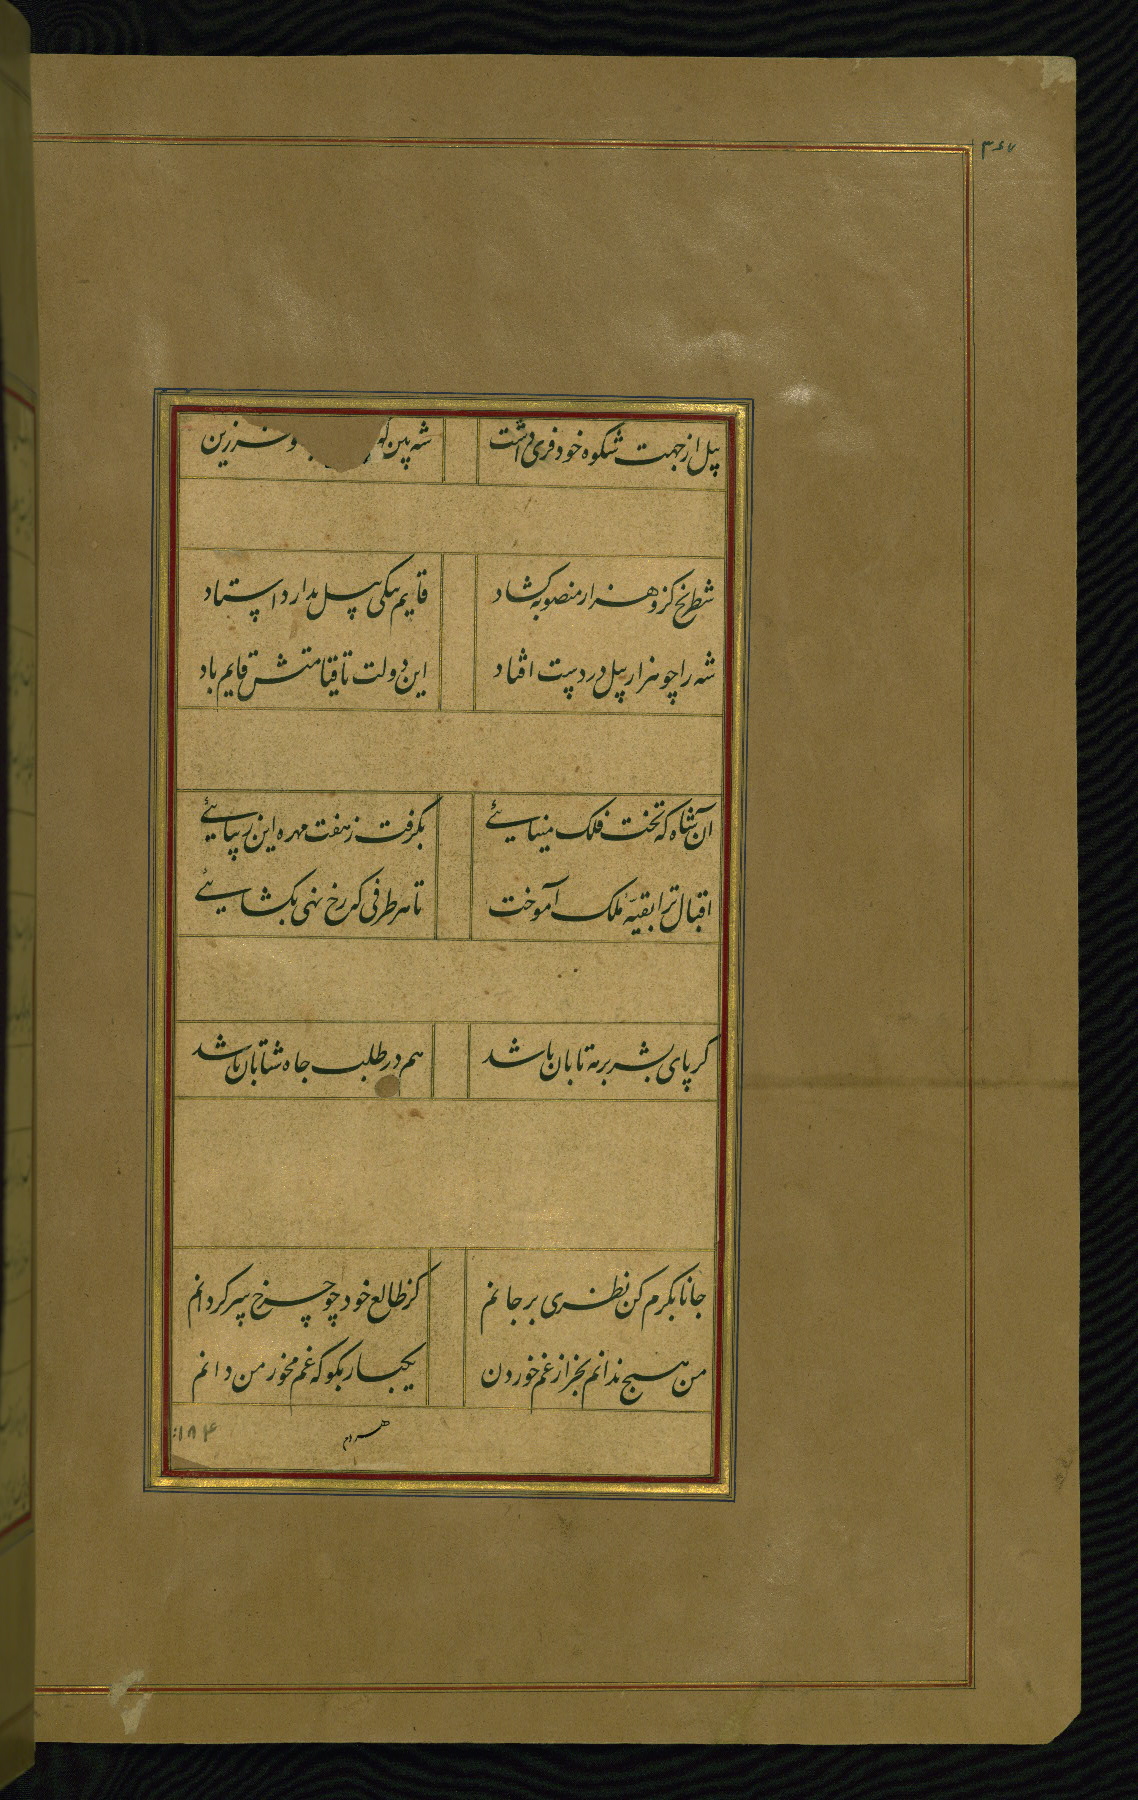 ۳۶۷
پیل از جهت شکوه خود فری داشت شه بین که
شطرنج کزو هزار منصوبه گشاد قایم بیکی پیل بدارد استاد
شه را چو هزار پیل در دست افتاد این دولت تا قیامتش قایم باد
آن شاه که تخت فلک مینایئی بگرفت ز هفت مهره این
اقبال ترا بقیهٔ ملک آموخت تا هر طرفی که رخ نهی بگشایئی
گر پای بشر بر مه تابان باشد هم در طلب جاه شتابان باشد
جانا بکرم کن نظری بر جانم کز طالع خود چو چرخ سرگردانم
من هیچ ندانم بجز از غم خوردن یکبار بگو که غم مخور من دانم
هردم
۱۸۴